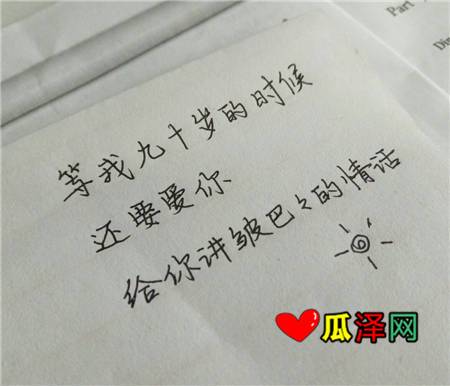 Part
Dis
等我九十岁的时候
还要爱你
给你讲皱巴々的情话
瓜泽网